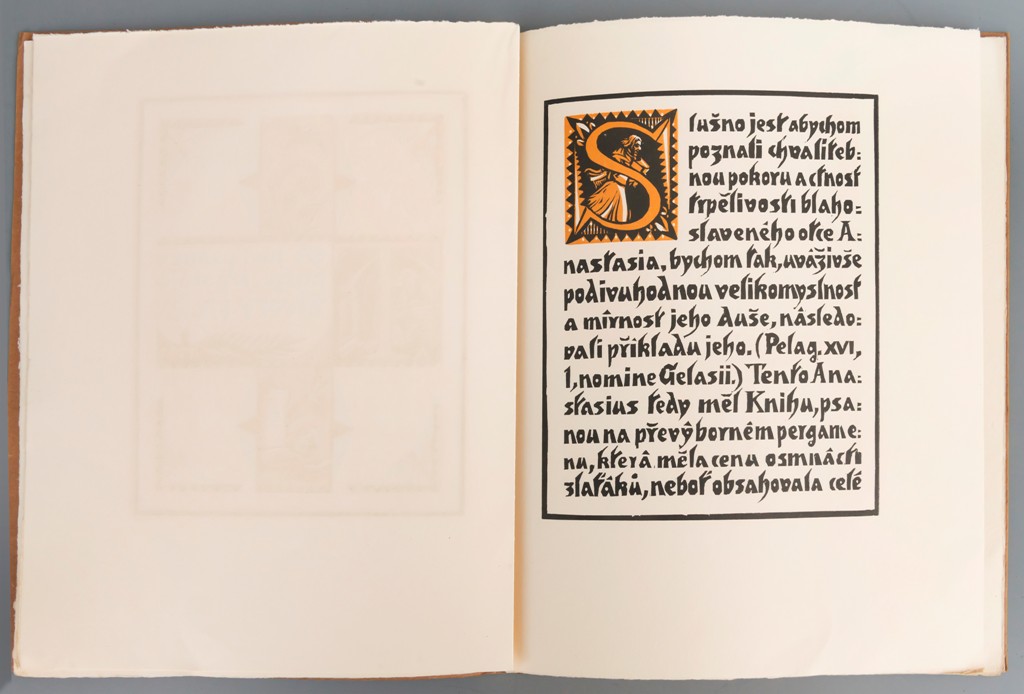 Slušno jest abychom
poznali chvaliteb:
nou pokoru a ctnost
trpělivosti blaho:
slaveného otce A:
nastasia, bychom tak, uvâživše
podivuhodnou velikomyslnost
a mîrnost jeho duše, nâsledo:
vali přikladu jeho. (Pelag. XVI,
1, nomine Gelasii.) Tento Ana:
stasius tedy měl Knihu, psa:
nou na převýborném pergame:
nu, kterâ měla cenu osmnâcti
zlaťâků, neboť obsahovala celé